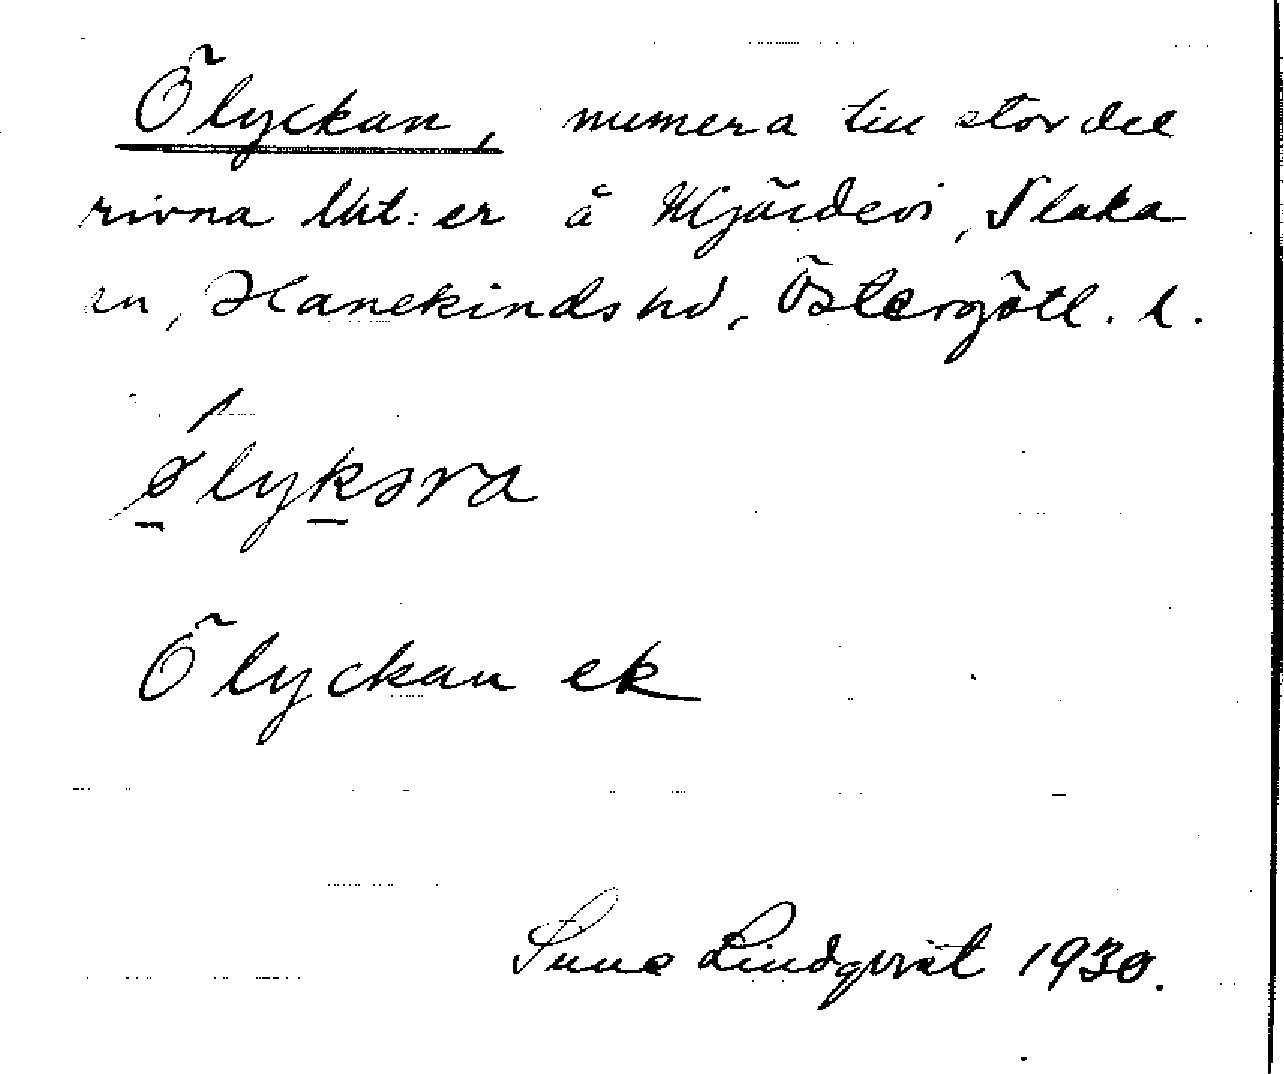 Ölyckan, numera till stor del
rivna lht:er å Mjärdevi, Slaka
sn, Hanekinds hd, Östergötl. l.
ølykəra
Ölyckan ek
Sune Lindqvist 1930.